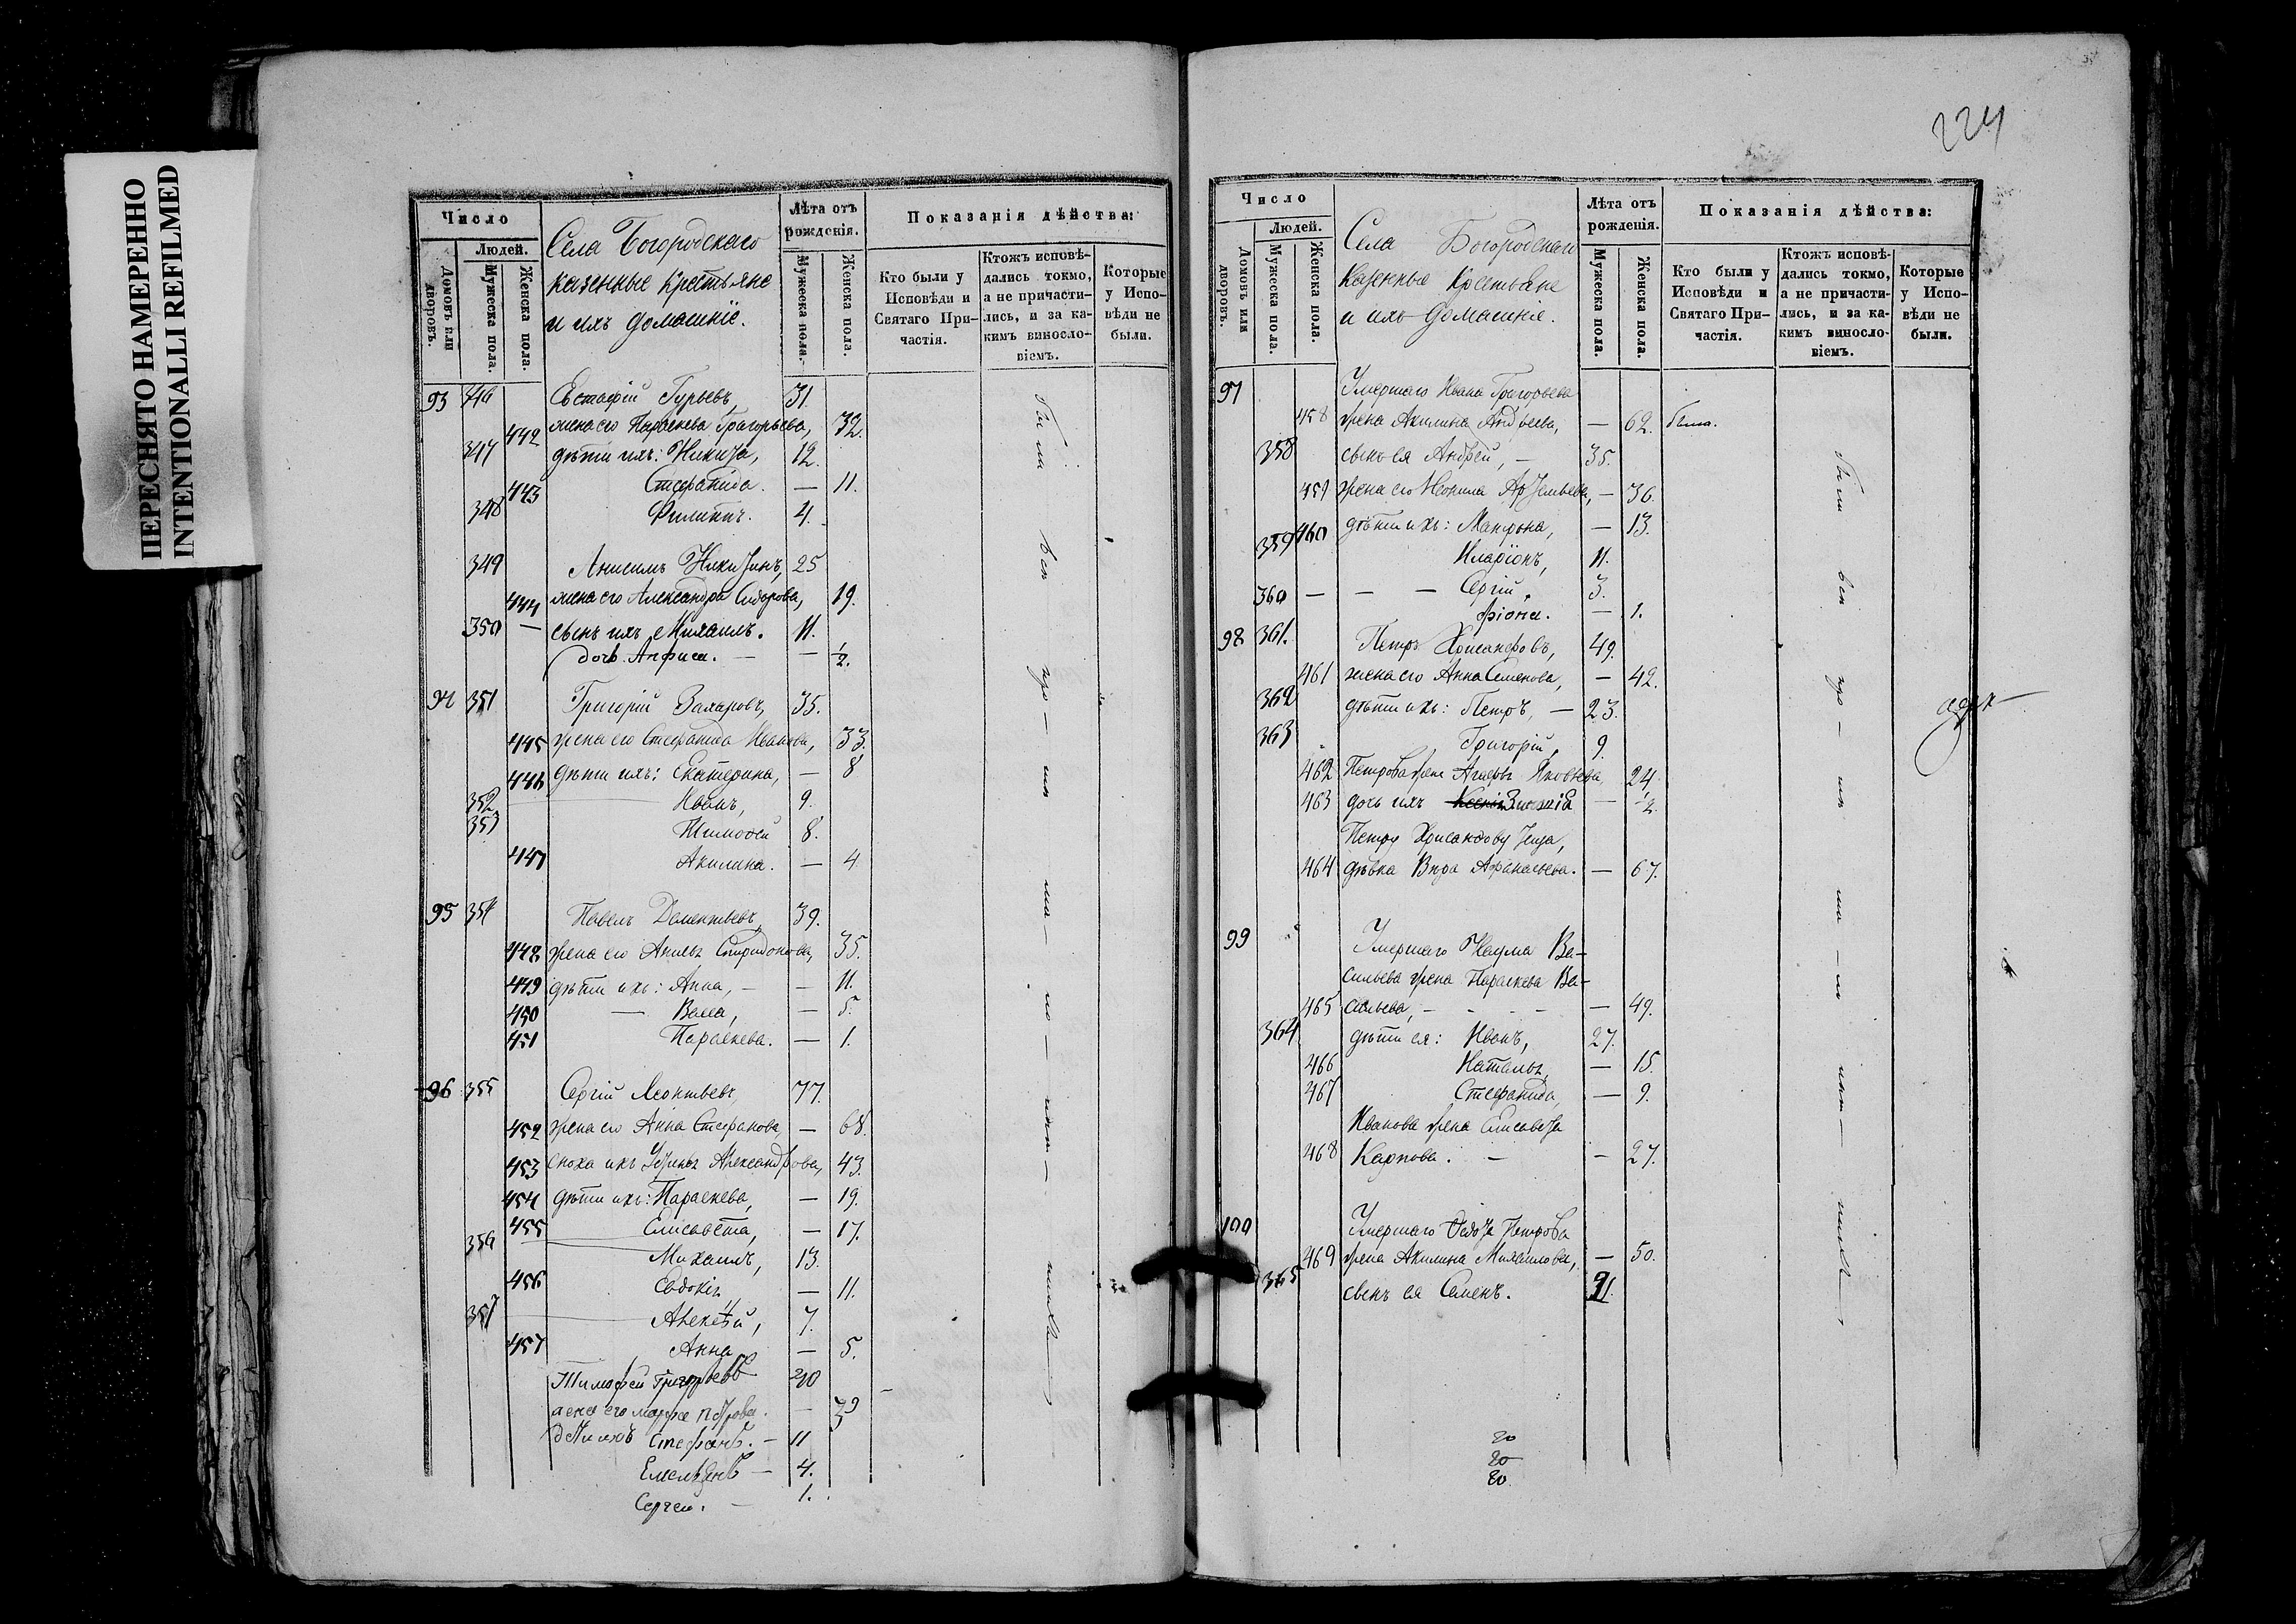 ПЕРЕСНЯТО НАМЕРЕННО
INTENTIONALLI REFILMED
Число
Людей.
Домовъ или дворовъ.
Мужеска пола.
Женска пола.
Села Богородскаго
казенные крестьяне
и ихъ домашніе.
Лѣта отъ рожденія.
Мужеска пола.
Женска пола.
Показанія дѣйства:
Кто были у Исповѣди и Святаго Причастія.
Ктожъ исповѣдались токмо, а не причастились, и за какимъ винословіемъ.
Которые у Исповѣди не были.
93 346 Евстафій Гурьевъ, 31.
442 жена его Параскева Григорьева, 32.
347 дѣти ихъ: Никита, 12.
443 Стефанида. — 11.
348 Филиппъ. 4.
349 Анисимъ Никитинъ, 25
444 жена его Александра Сидорова, 19.
350 — сынъ ихъ Михаилъ. 11.
дочь Анфиса. — — 1/2.
94 351 Григорій Захаровъ, 35.
445 жена его Стефанида Иванова, 33.
446 дѣти ихъ: Екатерина, — 8
352 Иванъ, 9.
353 Тимофей 8.
447 Акилина. — 4
95 354 Павелъ Дементьевъ, 39.
448 жена его Спиридонова, 35.
449 дѣти ихъ: Анна, — — 11.
450 — Васса, — 5.
451 Параскева. — 1.
96 355 Сергій Леонтьевъ, 77.
452 жена его Анна Стефанова, — 68.
453 сноха ихъ Устинья Александрова, 43.
454 дѣти ихъ: Параскева, — 19.
455 Елисавета, — 17.
356 Михаилъ, 13.
456 Евдокія — 11.
357 Алексѣй, 7.
457 Анна — 5.
Тимофей Григорьевъ 40
жена его Марфа Петрова. — 39
дѣти ихъ Стефанъ. — 11
Емельянъ — 4.
Сергей. — 1.
Были вси
224
Число
Людей.
Домовъ или дворовъ.
Мужеска пола.
Женска пола.
Села Богородскаго
Казенные Крестьяне
и ихъ домашніе.
Лѣта отъ рожденія.
Мужеска пола.
Женска пола.
Показанія дѣйства:
Кто были у Исповѣди и Святаго Причастія.
Ктожъ исповѣдались токмо, а не причастились, и за какимъ винословіемъ.
Которые у Исповѣди не были.
97 Умершаго Ивана Григорьева
458 жена Акилина Андреева, — 62. Была.
358 сынъ ея Андрей, — 35.
459 жена его — 36.
460 дѣти ихъ: Матрона, — 13.
359 Иларіонъ, 11.
360 — — — Сергій, 3.
— 1.
98 361. Петръ Хрисанфовъ, 49.
461 жена его Анна Семенова, — 42.
362 дѣти ихъ: Петръ, — 23.
363 Григорій, 9.
462 Петрова жена Яковлева 24.
463 дочь ихъ — 1/2.
Петру Хрисанфову тетка,
464 дѣвка Вѣра Афанасьева. — 67.
99 Умершаго Наума Ва-
сильева жена Параскева Ва-
465 сильева, — — — — 49.
364 дѣти ея: Иванъ, 27.
466 Наталья, — 15.
467 Стефанида, — 9.
Иванова жена Елисавета
468 Карпова. — — 27.
100 Умершаго Петрова
469 жена Акилина Михаилова, — 50.
365 сынъ ея Семенъ.
Были вси
20
20
20.